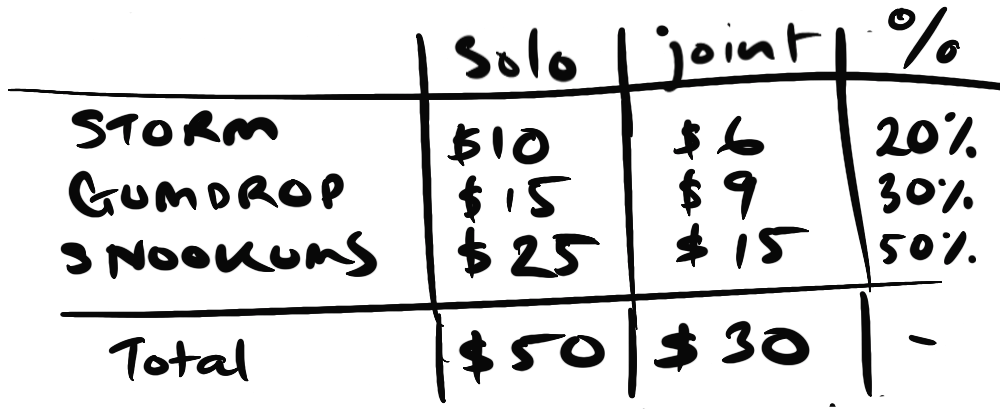 Solo joint %
STORM $10 $6 20%
GUMDROP $15 $9 30%
SNOOKUMS $25 $15 50%
Total $50 $30 -